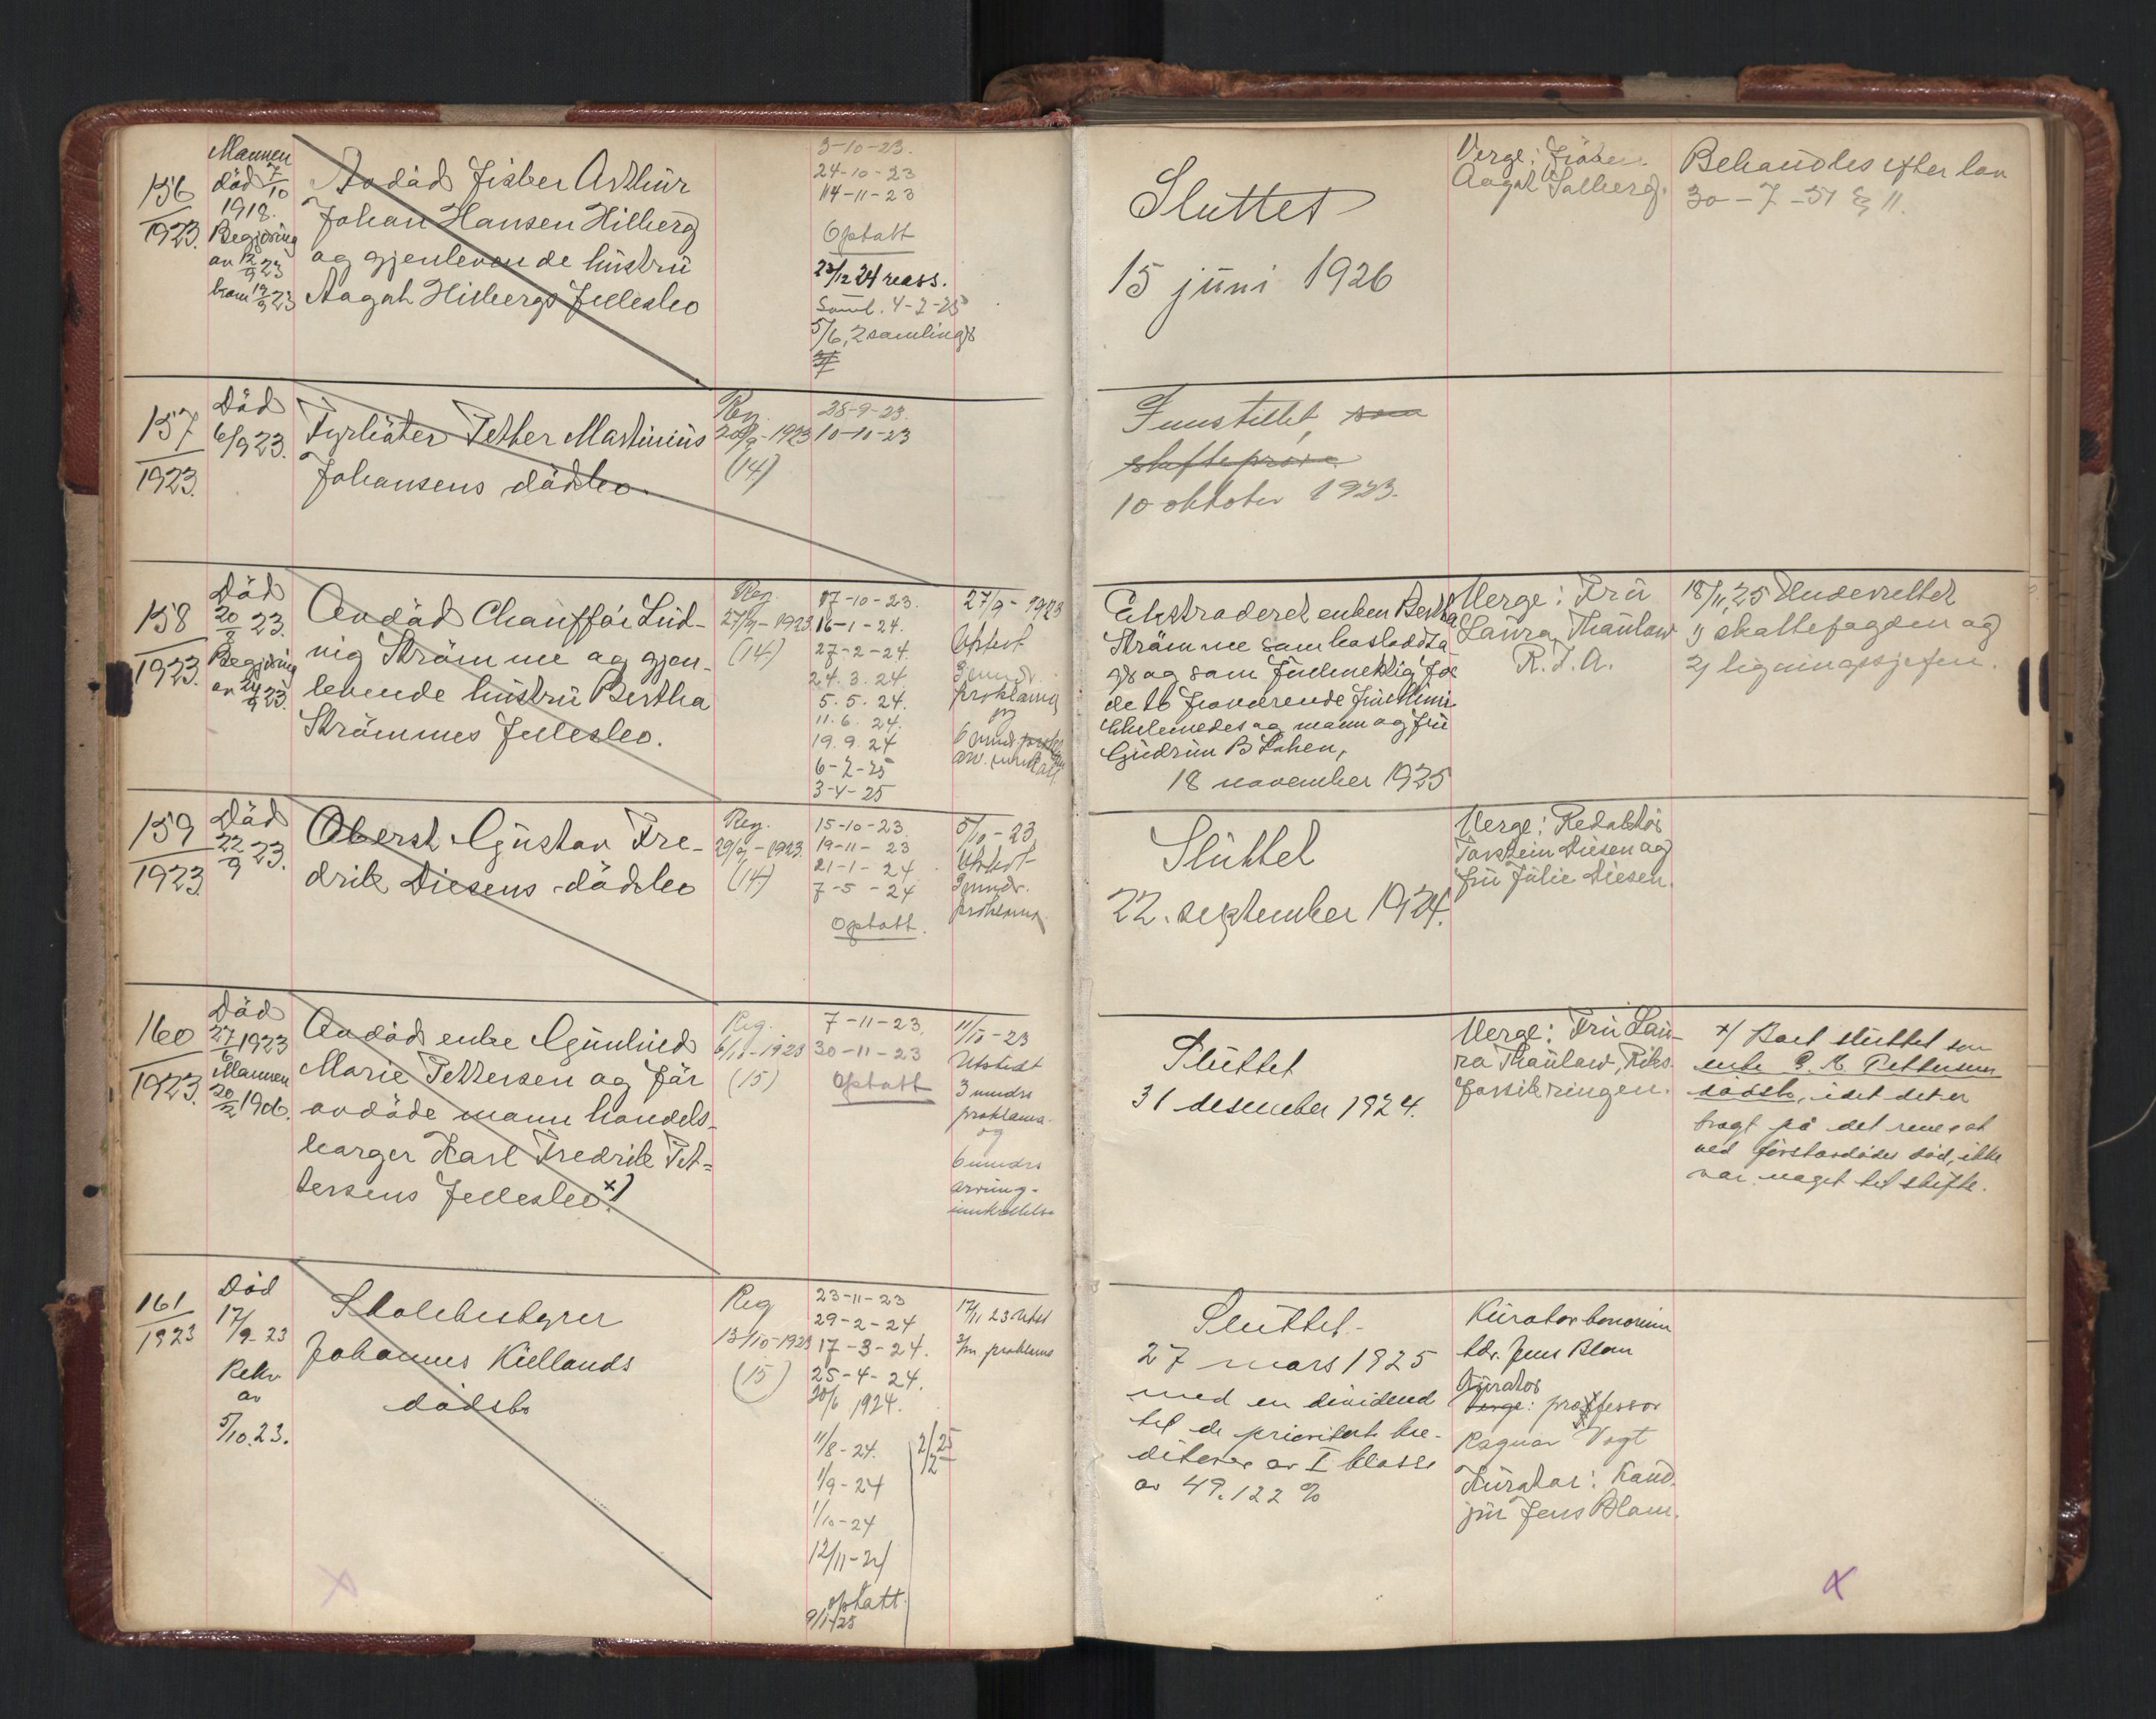 156
1923.
Mannen
död 7/10
1918.
Begjæring
av 12/9 23
kom 12/9 23
Avdöd Fisker Arthur
Johan Hansen Hilberg
og gjenlevende hustru
Aagot Hilbergs fellesbo
3-10-23.
24-10-23
14-11-23
Optatt
reass.
Saml. 4-2-25
5/6, 2 samlings
Sluttet
15 juni 1926
Verge: Fröken
Aagot Solberg.
Behandles efter lov
30-7-51 § 11.
157
1923.
Död
6/9 23.
Fyrböter Petter Martinius
Johansens dödsbo.
Reg.
1923
(14)
28-9-23.
10-10-23
Innstillet, som
skifteprove
10 oktober 1923.
158
1923.
Död
20/8 23.
Begjæring
av 24/9 23.
Avdöd Chaufför Lud-
vig Strömme og gjen-
levende hustru Bertha
Strömmes fellesbo.
Reg.
27/9-1923
(14)
17-10-23.
16-1-24.
27-2-24.
24.3.24.
5.5.24.
11.6.24.
19.9.24
6-2-25
3-4-25
27/9-1923
Utstedt
3 mndr.
proklama
og
6 mndr
arv. innkall.
Ekstraderet enken Bertha
Strömme som loslodta-
ger og som fullmektig for
de to
mann og fru
Gudrun B
18 november 1925
Verge: Fru
Laura Thaulow
R. F. A.
18/11 25 Underrettet
1) skattefogden og
2) ligningssjefen.
159
1923
Död
22/9 23.
Oberst Gustav Fre-
drik Diesens dödsbo
Reg.
29/9-1923.
(14)
15-10-23.
19-11-23
21-1-24
7-5-24
Optatt.
5/10-23.
Utstedt
3 mndr.
proklama
Sluttet
22. september 1924.
Verge: Redaktör
Torstein Diesen og
fru Julie Diesen.
160
1923.
Död
27/6 1923
Mannen
20/2 1906.
Avdöd enke Gunhild
Marie Pettersen og för
avdöde mann handels-
borger Karl Fredrik Pet-
tersens fellesbo x).
Reg.
6/10-1923
(15)
7-11-23.
30-11-23
Optatt
11/10-23
Utstedt
3 mndrs
proklama.
og
6 mndrs
arving-
innkallelse
Sluttet
31 desember 1924.
Verge: Fru Lau-
ra Thaulow, Riks-
forsikringen.
x) Boet sluttet som
enke G. M. Pettersen
dödsbo, idet det er
bragt på det rene at
ved förstavdödes död, ikke
var noget til skifte.
161
1923
Död
17/9-23
Rekv
av
5/10.23.
Skolebestyrer
Johannes Kiellands
dödsbo
Reg
13/10-1923
(15)
23-11-23
29-2-24
17-3-24.
25-4-24.
30/6 1924.
11/8-24.
1/9-24
1/10-24
12/11-24
optatt.
9/1-25
2/2 25
17/11 23 Utst
3/m proklama
Sluttet-
27 mars 1925
med en dividend
til de prioritert kre-
ditorer av I klasse
av 49.122 %
Kurator bonorum
Jens Blom
Kurator
Verge: professor
Ragnar Vogt
Kurator: Kand.
jur Jens Blom.
x
x